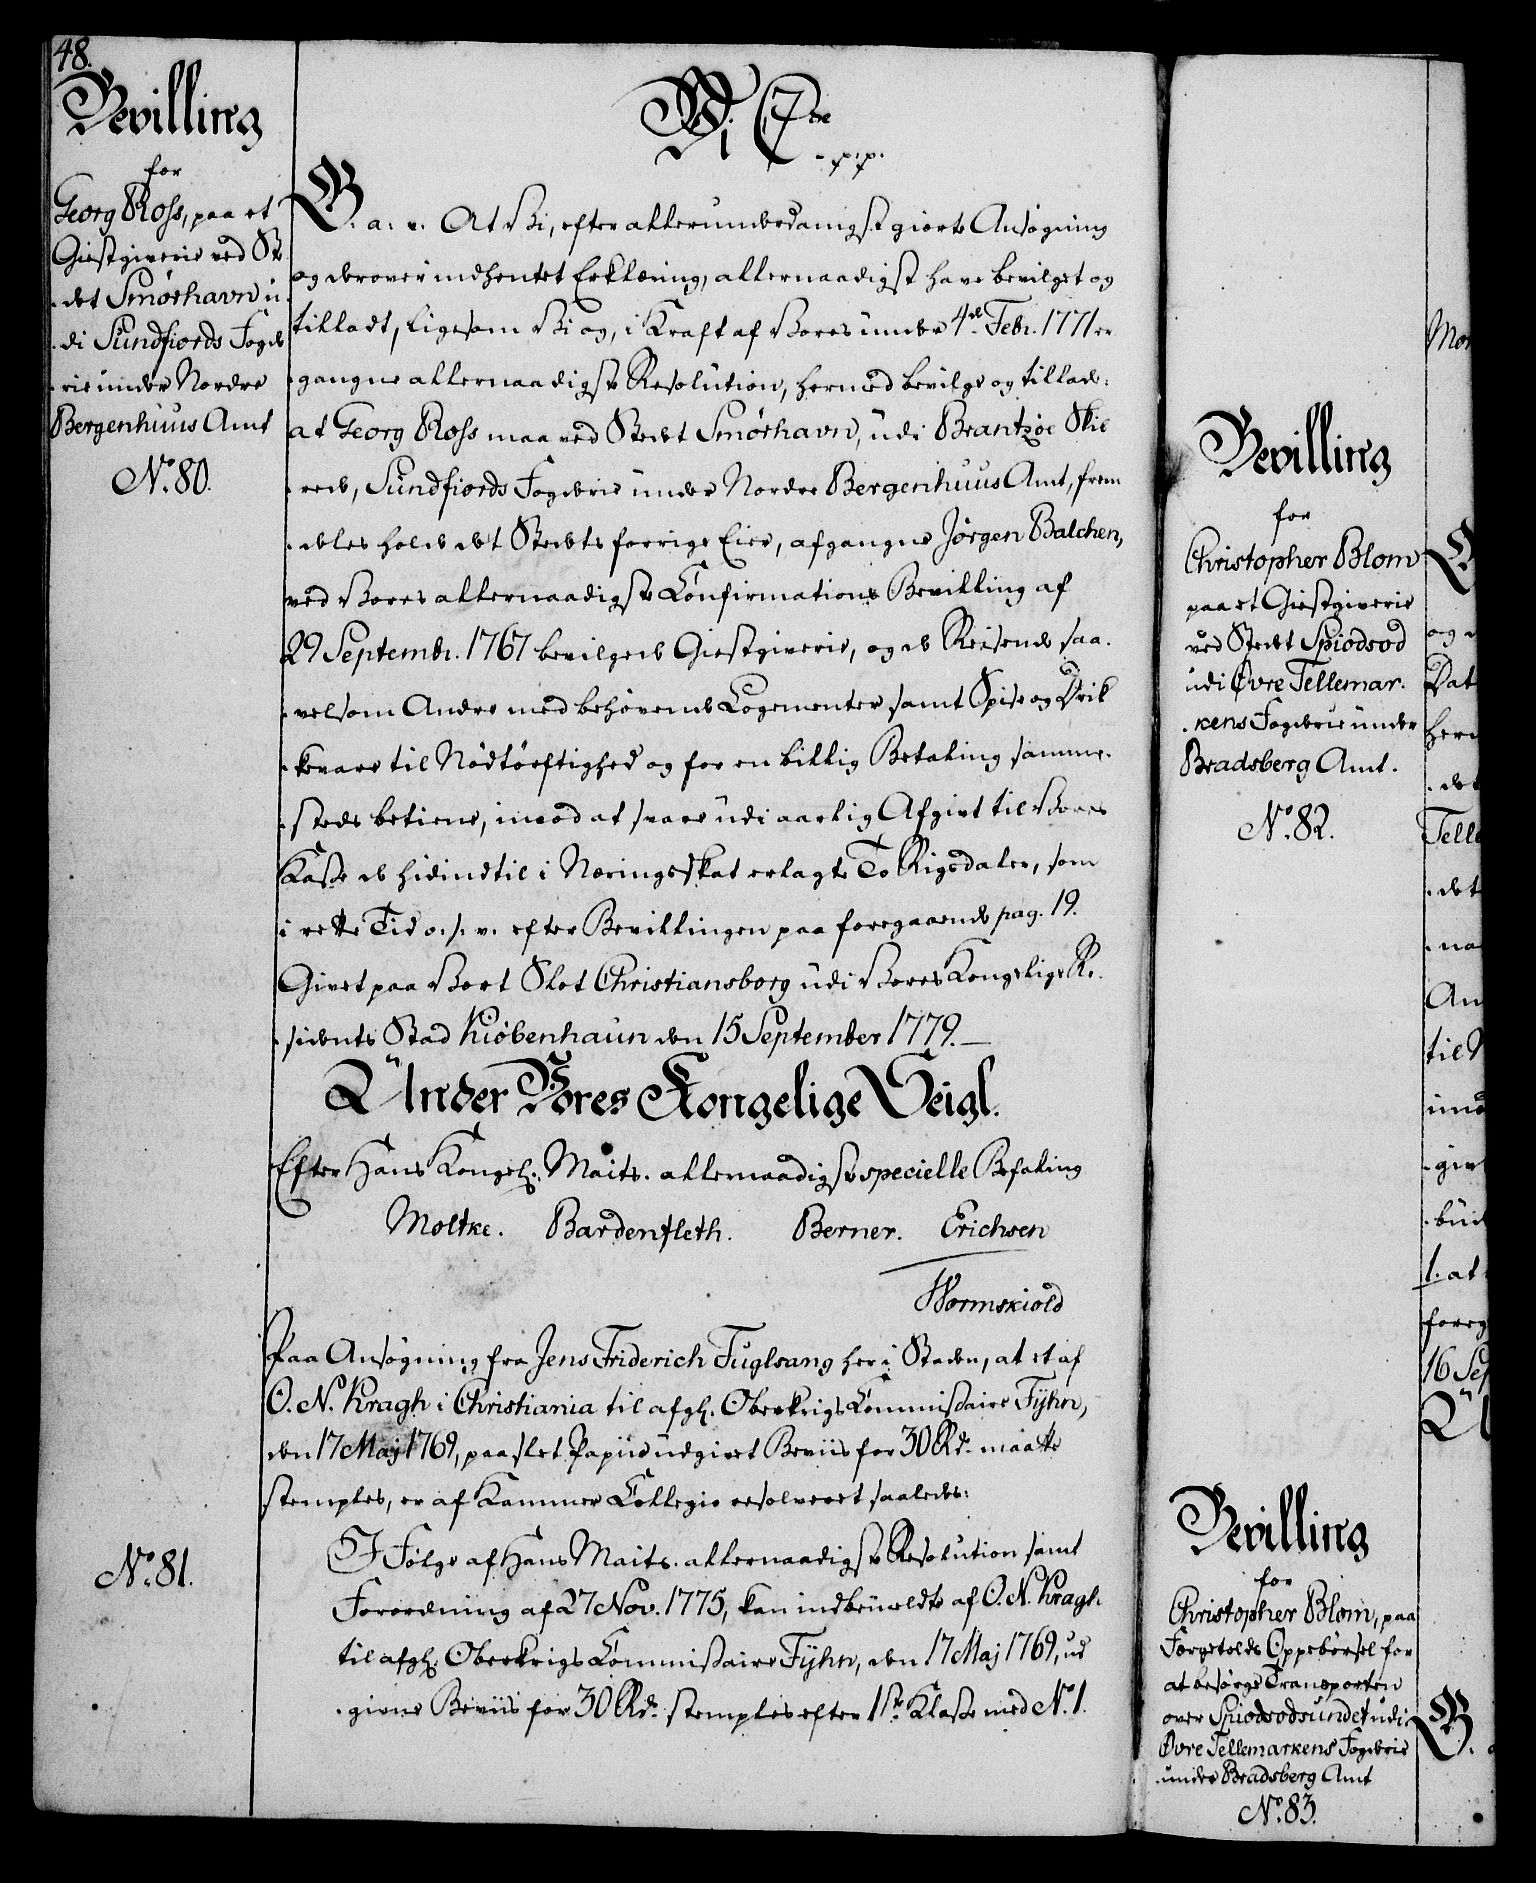 48.
Bevilling
for
Georg Ross, paa et
Giestgiverie ved Ste-
-det Smørhavn u-
-di Sundfiords Fogde-
-rie under Nordre
Bergenhuus Amt
No. 80.
Vi C 7de
- p. p.
G. a. v. At Vi, efter allerunderdanigst giorte Ansøgning
og derover indhentet Erklæring, allernaadigst have bevilget og
tilladt, ligesom Vi og, i Kraft af Vores under 4de Febr. 1771 er-
-gangne allernaadigste Resolution, hermed bevilge og tillade:
at Georg Ross maa ved Stedet Smørhavn, udi Brantzøe Skib-
-rede, Sundfiords Fogderie under Nordre Bergenhuus Amt, frem-
-deles holde det Stedets forrige Eier, afgangne Jørgen Balchen,
ved Vores allernaadigste Confirmations Bevilling af
29 Septembr. 1767 bevilgede Giestgiverie, og de Reisende saa-
-velsom Andre med behøvende Logementer samt Spise og Drik-
-kevare til Nødtørftighed og for en billig Betaling samme-
-steds betiene, imod at svare udi aarlig Afgivt til Vores
Kasse de hidindtil i Næringsskat erlagte To Rigsdaler, som
i rette Tid o. s. v. efter Bevillingen paa foregaaende pag. 19.
Givet paa Vort Slot Christiansborg udi Vores Kongelige Re-
-sidents Stad Kiøbenhaun den 15 September 1779.
Under Vores Kongelige Seigl.
Efter Hans Kongel. Maits. allernaadigste specielle Befaling
Moltke. Bardenfleth. Berner. Erichsen
Wormskiold
Paa Ansøgning fra Jens Friderich Fuglsang her i Staden, at et af
O. N. Kragh i Christiania til afgl. Oberkrigs Commissaire Fyhn,
den 17 Maj 1769, paa slet Papiir udgivet Beviis for 30 Rd. maatte
stemples, er af Kammer Collegio resolveret saaledes:
No. 81.
I Følge af Hans Maits. allernaadigste Resolution samt
Forordning af 27 Nov. 1775, kan indbemeldte af O. N. Kragh
til afgl. Oberkrigs Commissaire Fyhn, den 17 Maj 1769, ud-
-givne Beviis for 30 Rd. stemples efter 1ste Klasse med No. 1.
Bevilling
for
Christopher Blom
paa et Giestgiverie
ved Stedet Spiodsod
udi Øvre Tellemar-
-kens Fogderie under
Bradsberg Amt.
No. 82.
Bevilling
for
Christopher Blom, paa
Færgetolds Oppebørsel for
at besørge Transporten
over Spiodsodsundet udi
Øvre Tellemarkens Fogderie
under Bradsberg Amt
No. 83.
og
Dat
her
-det
Telle
-det
-na
An
til N
imod
-giv
1. at
foreg
16 Sep